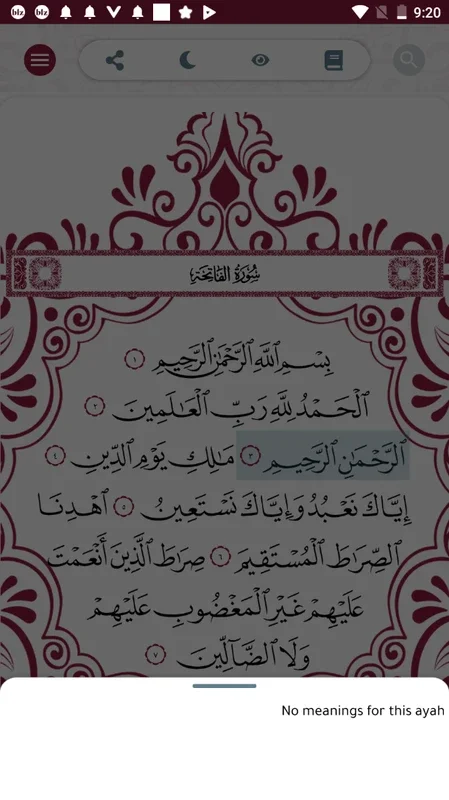 blz blz 9:20
سُورَةُ الفَاتِحَةِ
بِسْمِ ٱللَّهِ ٱلرَّحْمَٰنِ ٱلرَّحِيمِ ١
ٱلْحَمْدُ لِلَّهِ رَبِّ ٱلْعَٰلَمِينَ ٢
ٱلرَّحْمَٰنِ ٱلرَّحِيمِ ٣ مَٰلِكِ يَوْمِ ٱلدِّينِ ٤
إِيَّاكَ نَعْبُدُ وَإِيَّاكَ نَسْتَعِينُ ٥ ٱهْدِنَا
ٱلصِّرَٰطَ ٱلْمُسْتَقِيمَ ٦ صِرَٰطَ ٱلَّذِينَ أَنْعَمْتَ
عَلَيْهِمْ غَيْرِ ٱلْمَغْضُوبِ عَلَيْهِمْ
وَلَا ٱلضَّآلِّينَ ٧
No meanings for this ayah